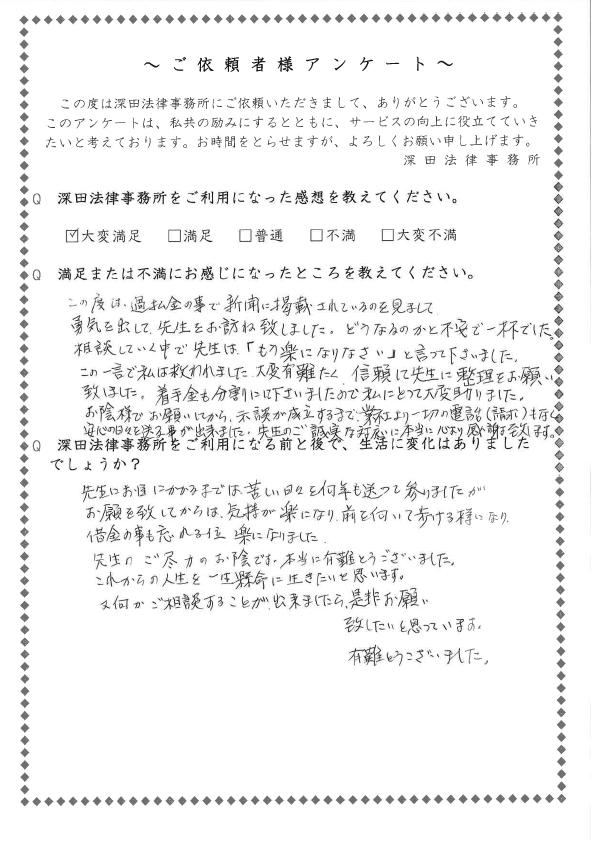 ～ご依頼者様アンケート～
この度は深田法律事務所にご依頼いただきまして、ありがとうございます。
このアンケートは、私共の励みにするとともに、サービスの向上に役立てていき
たいと考えております。お時間をとらせますが、よろしくお願い申し上げます。
深田法律事務所
Q 深田法律事務所をご利用になった感想を教えてください。
☑大変満足 □満足 □普通 □不満 □大変不満
Q 満足または不満にお感じになったところを教えてください。
この度は、過払金の事で新聞に掲載されているのを見まして
勇気を出して、先生をお訪ね致しました。どうなるのかと不安で一杯でした。
相談していく中で先生は、「もう楽になりなさい」と言って下さいました。
この一言で私は救われました。大変有難たく、信頼して先生に整理をお願い
致しました。着手金も分割にして下さいましたので私にとって大変助りました。
お陰様でお願いしてから、示談が成立するまで、業社より一切の電話(請求)もなく
安心の日々を送る事が出来ました。先生のご誠実な対応に本当に心より感謝致します。
Q 深田法律事務所をご利用になる前と後で、生活に変化はありました
でしょうか？
先生にお目にかかるまでは、苦しい日々を何年も送って参りましたが
お願を致してからは、気持が楽になり、前を向いて歩ける様になり、
借金の事も忘れる位、楽になりました。
先生のご尽力のお陰です。本当に有難とうございました。
これからの人生を一生懸命に生きたいと思います。
又何かご相談することが出来ましたら、是非お願い
致したいと思っています。
有難とうございました。